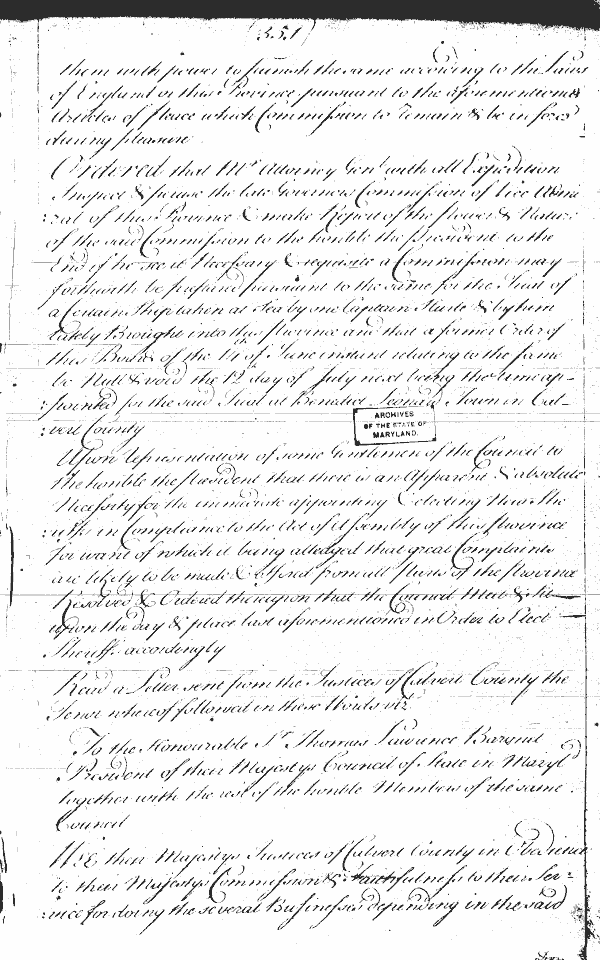 (351)
them with power to furnish the same according to the Laws
of England or this Province pursuant to the aforementioned
Articles of Peace which Commission to remain & be in force
during pleasure
Ordered that Mr Attorney Genl with all Expedition
Inspect & peruse the late Governors Commission of Vice Admi
:ral of this Province & make Report of the Power & Virtue
of the said Commission to the honble the President to the
End if he see it Necessary & requisite a Commission may
forthwith be prepared pursuant to the same for the Tryal of
a Certain Ship taken at Sea by one Captain & by him
lately Brought into this Province and that a former Order of
this Board of the 14th of June instant relating to the same
be Null & void the 12 day of July next being the time ap-
:pointed for the said Tryal at Benedict Leonard Town in Cal-
:vert County
ARCHIVES
OF THE STATE OF
MARYLAND.
Upon representation of some Gentlemen of the Council to
the honble the President that there is an Apparent & absolute
Necessity for the immediate appointing & electing New She
:riffs in Compliance to the Act of Assembly of this Province
for want of which it being alledged that great Complaints
are likely to be made & offered from all Parts of the Province
Resolved & Ordered thereupon that the Council Meet & Sit
upon the day & place last aforementioned in Order to Elect
Sheriffs accordingly
Read a Letter sent from the Justices of Calvert County the
Tenor whereof followed in these Words vizt
To the Honourable Sr Thomas Lawrence Baronet
President of their Majestys Council of State in Maryld
together with the rest of the honble Members of the same
Council
WE their Majestys Justices of Calvert County in Obedience
to their Majestys Commission & faithfulness to their Ser-
:vice for doing the several Businesses depending in the said